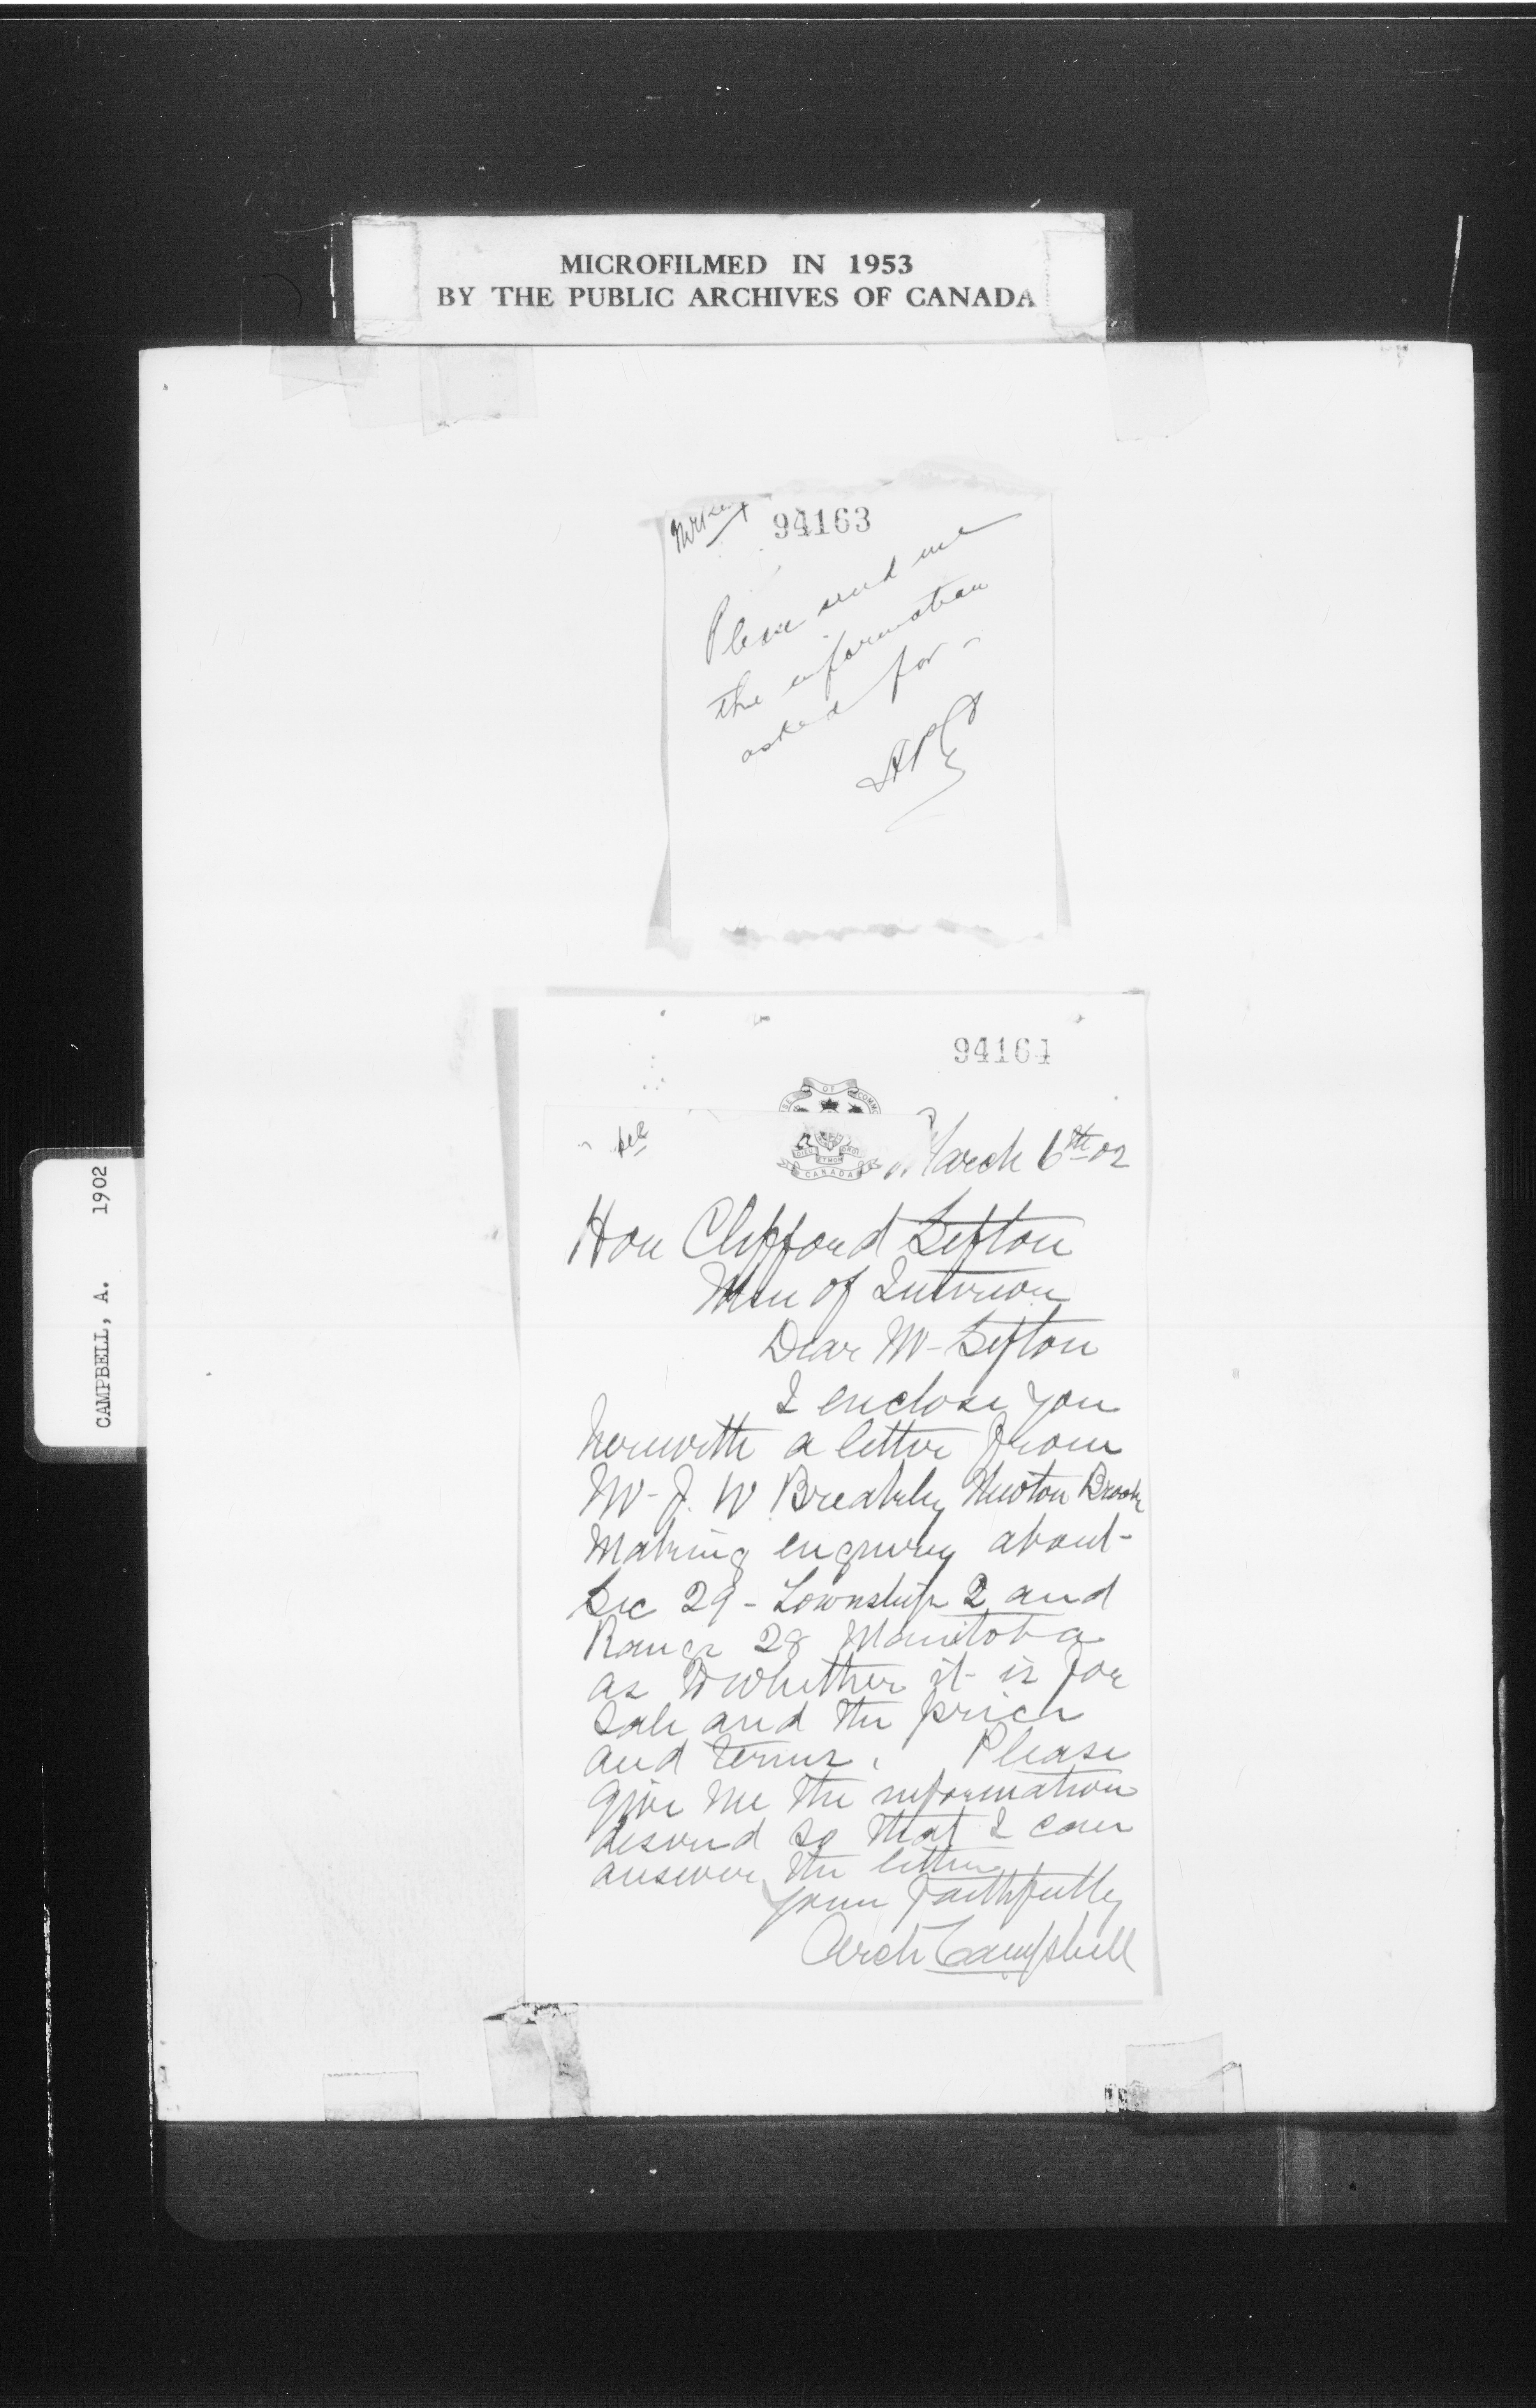 MICROFILMED IN 1953
BY THE PUBLIC ARCHIVES OF CANADA
94163
Please send me
the information
asked for -
94164
OF
CANADA
March 6th 02
Hon Clifford Sifton
Min of Interior
Dear Mr Sifton
I enclose you
herewith a letter from
Mr J. W Breakley Newton Brook
Making enquiry about
Sec 29 - Township 2 and
Range 28 Manitoba
as to whether it is for
Sale and the price
and terms. Please
give me the information
desired so that I can
answer the letter
Yours faithfully
Arch Campbell
CAMPBELL, A. 1902